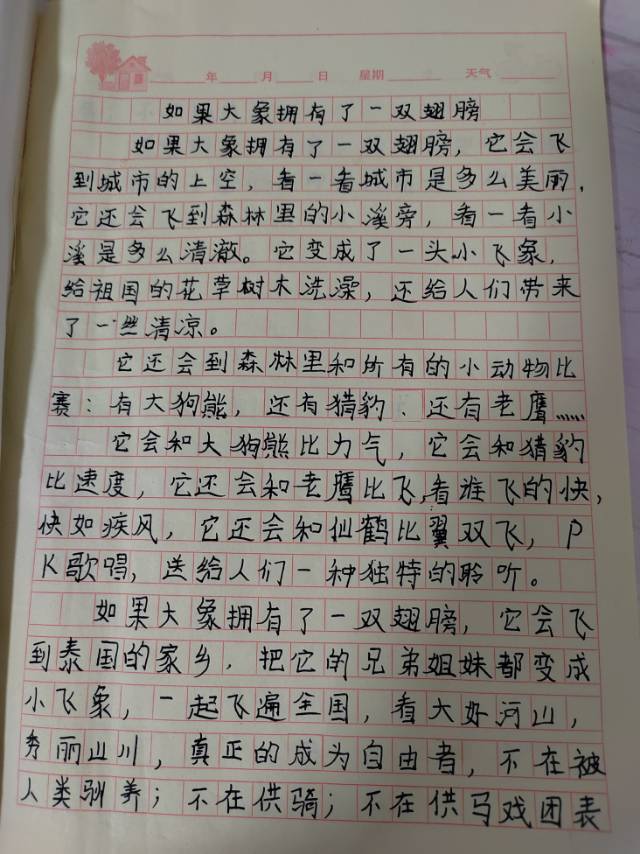 年 月 日 星期 天气
如果大象拥有了一双翅膀
如果大象拥有了一双翅膀，它会飞
到城市的上空，看一看城市是多么美丽，
它还会飞到森林里的小溪旁，看一看小
溪是多么清澈。它变成了一头小飞象，
给祖国的花草树木洗澡，还给人们带来
了一丝清凉。
它还会到森林里和所有的小动物比
赛：有大狗熊，还有猎豹、还有老鹰……
它会和大狗熊比力气，它会和猎豹
比速度，它还会和老鹰比飞，看谁飞的快，
快如疾风，它还会和仙鹤比翼双飞，P
K歌唱，送给人们一种独特的聆听。
如果大象拥有了一双翅膀，它会飞
到泰国的家乡，把它的兄弟姐妹都变成
小飞象，一起飞遍全国，看大好河山，
秀丽山川，真正的成为自由者，不在被
人类驯养；不在供骑；不在供马戏团表